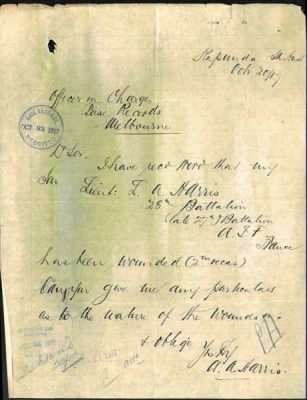 Kapunda Sth Aust
Oct 20/17
Officer in Charge
Base Records
Melbourne
BASE RECORDS
OCT 23 1917
Dr Sir.
I have recd word that my
Son Lieut: L. A Harris
28th Battalion
late 27th Battalion
A.I.F
France
has been wounded (2nd occas)
Can you give me any particulars
as to the nature of the wounds
& oblige Yrs
A. A Harris.